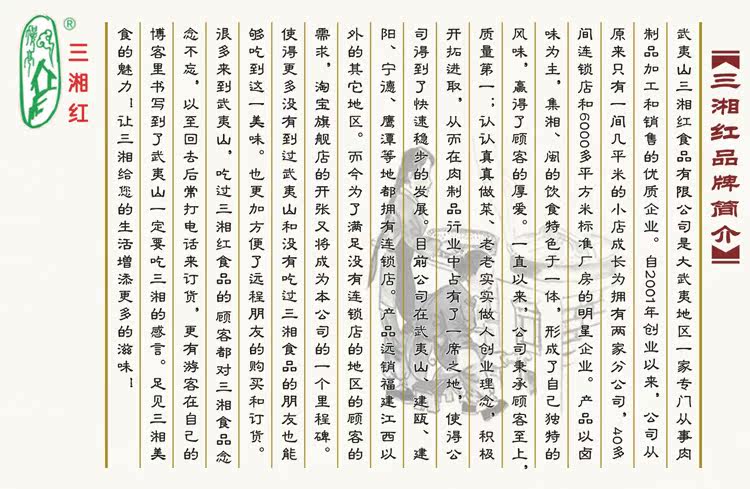 【三湘红品牌简介】
武夷山三湘红食品有限公司是大武夷地区一家专门从事肉
制品加工和销售的优质企业。自2001年创业以来,公司从
原来只有一间几平米的小店成长为拥有两家分公司,40多
间连锁店和6000多平方米标准厂房的明星企业。产品以卤
味为主,集湘、闽的饮食特色于一体,形成了自己独特的
风味,赢得了顾客的厚爱。一直以来,公司秉承顾客至上,
质量第一;认认真真做菜、老老实实做人创业理念,积极
开拓进取,从而在肉制品行业中占有了一席之地,使得公
司得到了快速稳步的发展。目前公司在武夷山、建瓯、建
阳、宁德、鹰潭等地都拥有连锁店。产品远销福建江西以
外的其它地区。而今为了满足没有连锁店的地区的顾客的
需求,淘宝旗舰店的开张又将成为本公司的一个里程碑。
使得更多没有到过武夷山和没有吃过三湘食品的朋友也能
够吃到这一美味。也更加方便了远程朋友的购买和订货。
很多来到武夷山,吃过三湘红食品的顾客都对三湘食品念
念不忘,以至回去后常打电话来订货,更有游客在自己的
博客里书写到了武夷山一定要吃三湘的感言。足见三湘美
食的魅力!让三湘给您的生活增添更多的滋味!
三湘红
®